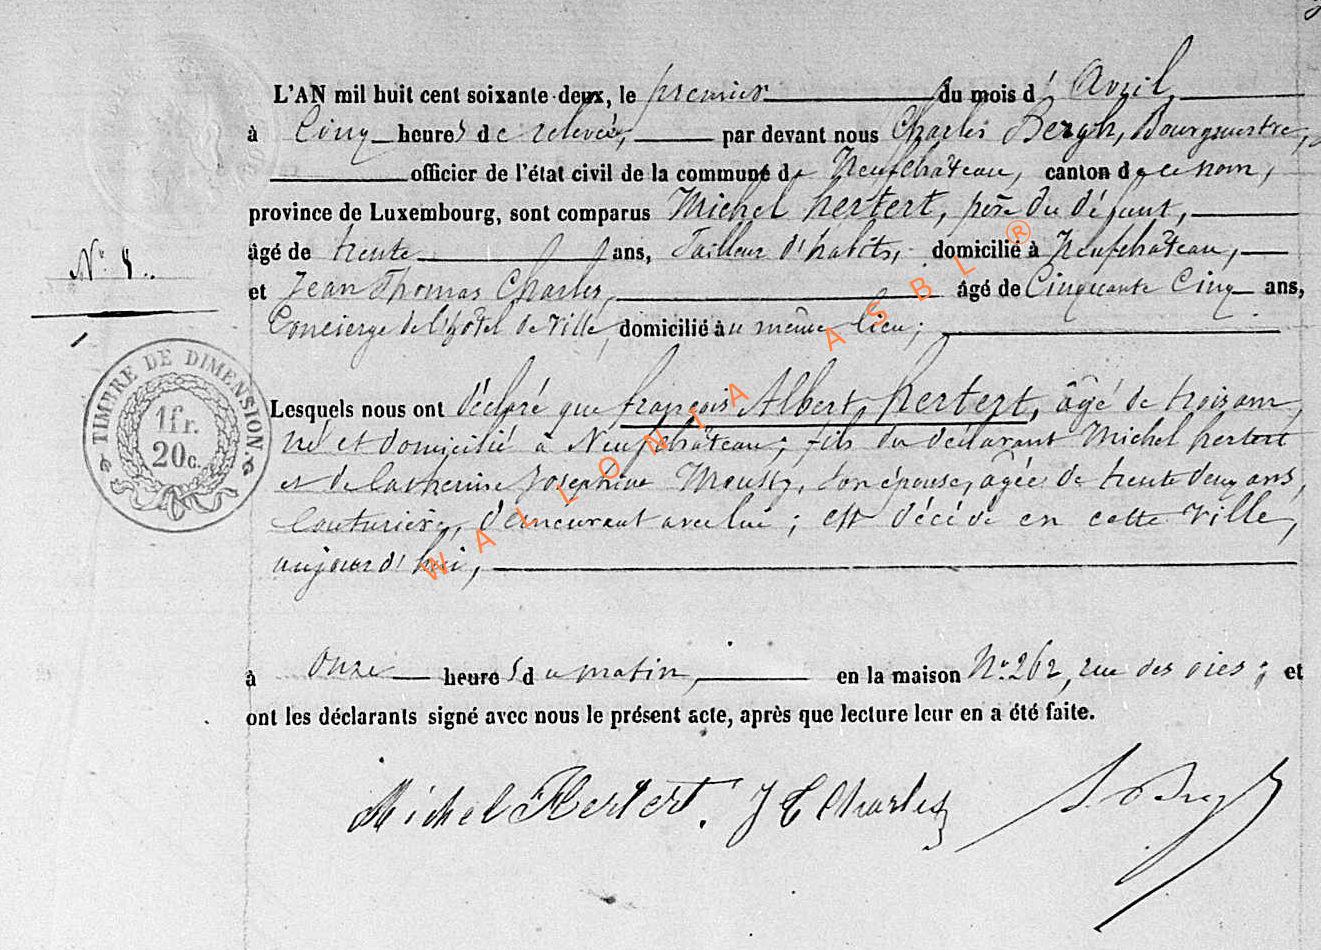 L'AN mil huit cent soixante-deux, le premier du mois d'Avril
à Cinq heures de relevée, par devant nous Charles Bergh, Bourgmestre,
officier de l'état civil de la commune de Neufchâteau, canton de ce nom,
province de Luxembourg, sont comparus Michel hertert, père du défunt,
âgé de trente ans, Tailleur d'habits, domicilié à Neufchâteau,
N° 8.
et Jean Thomas Charles, âgé de Cinquante Cinq ans,
Concierge de l'hôtel de Ville, domicilié au même lieu;
TIMBRE DE DIMENSION.
1fr.
20c.
Lesquels nous ont déclaré que françois Albert hertert, âgé de trois ans,
né et domicilié à Neufchâteau, fils du déclarant Michel hertert
et de Catherine Josephine Mousty, son épouse, âgée de trente deux ans,
Couturière, demeurant avec lui; est décédé en cette Ville,
aujourd'hui,
à Onze heures du matin, en la maison N° 262, rue des oies; et
ont les déclarants signé avec nous le présent acte, après que lecture leur en a été faite.
Michel Hertert. J T Charles
WALLONIA ASBL ®